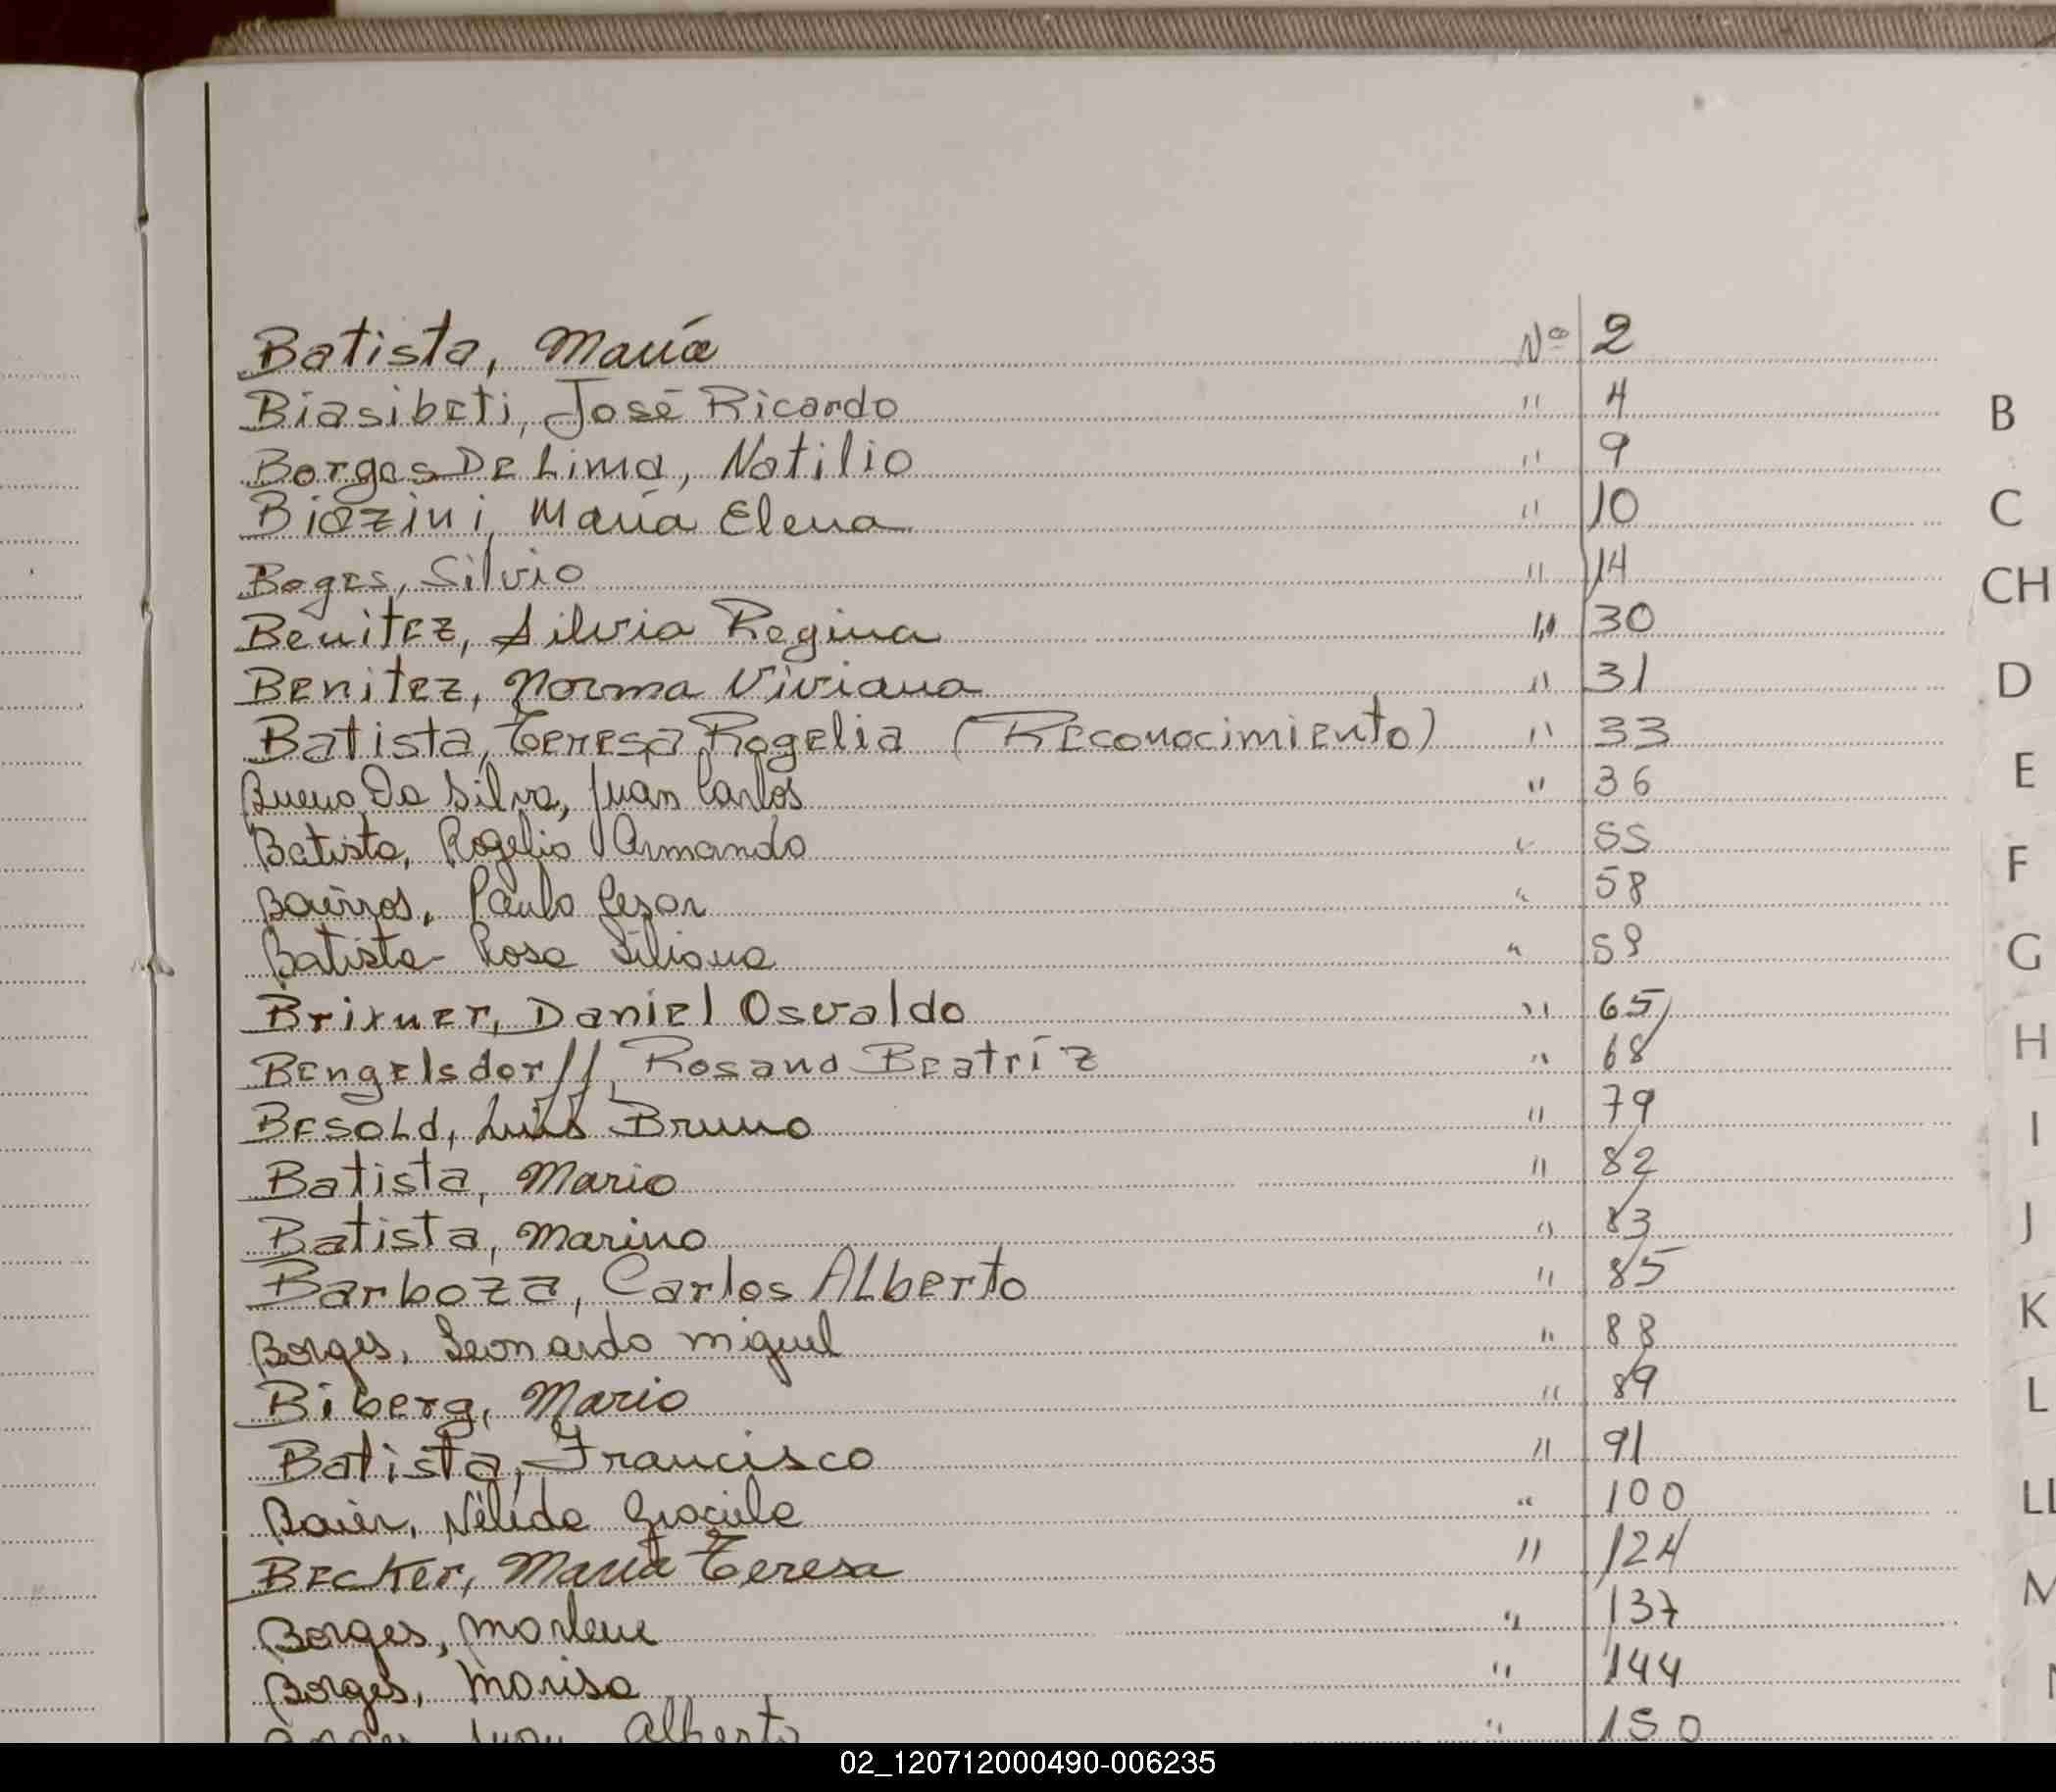 Batista, María Nº 2
Biasibeti, José Ricardo " 4
Borges De Lima, Natilio " 9
Biazini, María Elena " 10
Boges, Silvio " 14
Benitez, Silvia Regina " 30
Benitez, Norma Viviana " 31
Batista, Teresa Rogelia (Reconocimiento) " 33
Bueno Da Silva, Juan Carlos " 36
Batista, Rogelio Armando " 55
Bairros, Paulo Cesar " 58
Batista Rosa Liliana " 59
Brixner, Daniel Osvaldo " 65
Bengelsdorff, Rosana Beatríz " 68
Besold, Luis Bruno " 79
Batista, Mario " 82
Batista, Marino " 83
Barboza, Carlos Alberto " 85
Borges, Leonardo Miguel " 88
Biberg, Mario " 89
Batista, Francisco " 91
Baier, Nélida Graciela " 100
Becker, María Teresa " 124
Borges, Marlene " 137
Borges, Marisa " 144
Juan Alberto " 150
B
C
CH
D
E
F
G
H
I
J
K
L
LL
M
02_120712000490-006235